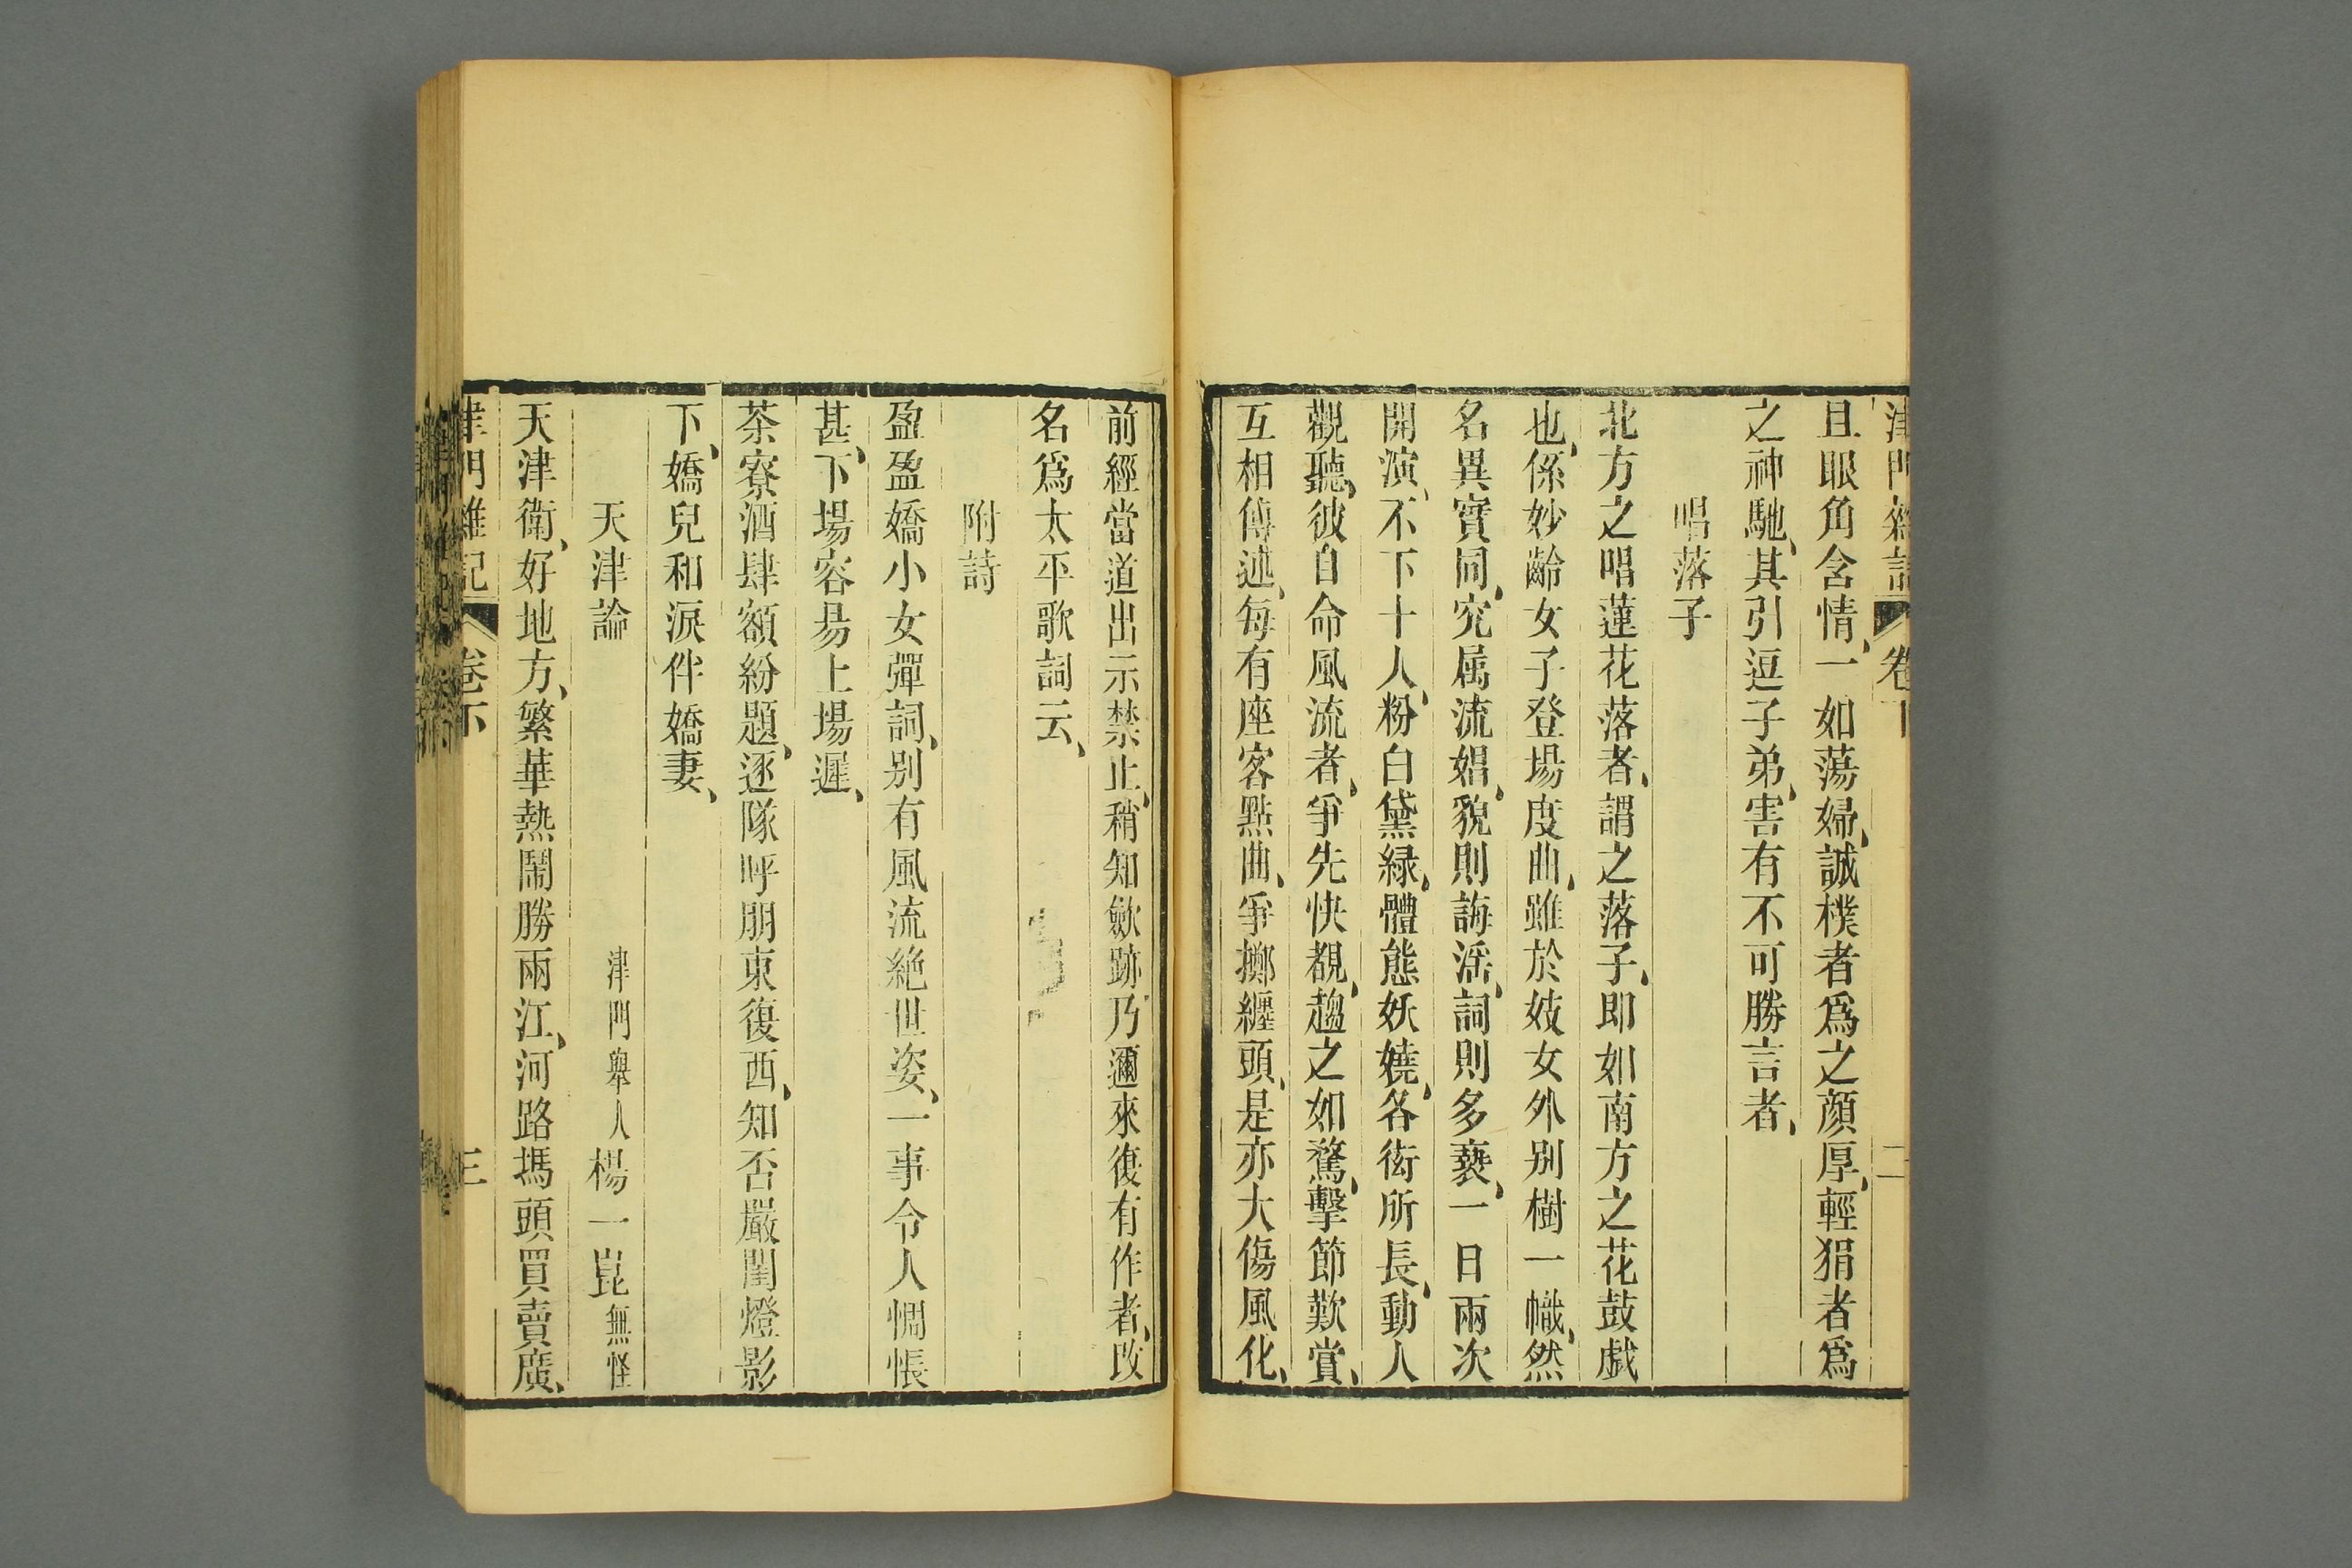 津門雜記 卷下 二
且眼角含情、一如蕩婦、誠樸者爲之顔厚、輕狷者爲
之神馳、其引逗子弟、害有不可勝言者、
唱落子
北方之唱蓮花落者、謂之落子、即如南方之花鼓戯
也、係妙齡女子登場度曲、雖於妓女外别樹一幟、然
名異實同、究属流娼、貌則誨滛、詞則多褻、一日兩次
開演、不下十人、粉白黛緑、體態妖嬈、各衒所長、動人
觀聽、彼自命風流者、爭先快覩、趨之如鶩、擊節歎賞、
互相傳述、每有座客點曲、爭擲纏頭、是亦大傷風化、
前經當道出示禁止、稍知歛跡、乃邇來復有作者、改
名爲太平歌詞云、
附詩
盈盈嬌小女彈詞、别有風流絶世姿、一事令人惆悵
甚、下場容易上場遲、
茶寮酒肆額紛題、逐隊呼朋東復西、知否嚴閨燈影
下、嬌兒和淚伴嬌妻、
天津論 津門舉人楊一崑無怪
天津衛、好地方、繁華熱鬧勝兩江、河路塲頭買賣廣、
津門雜記 卷下 三